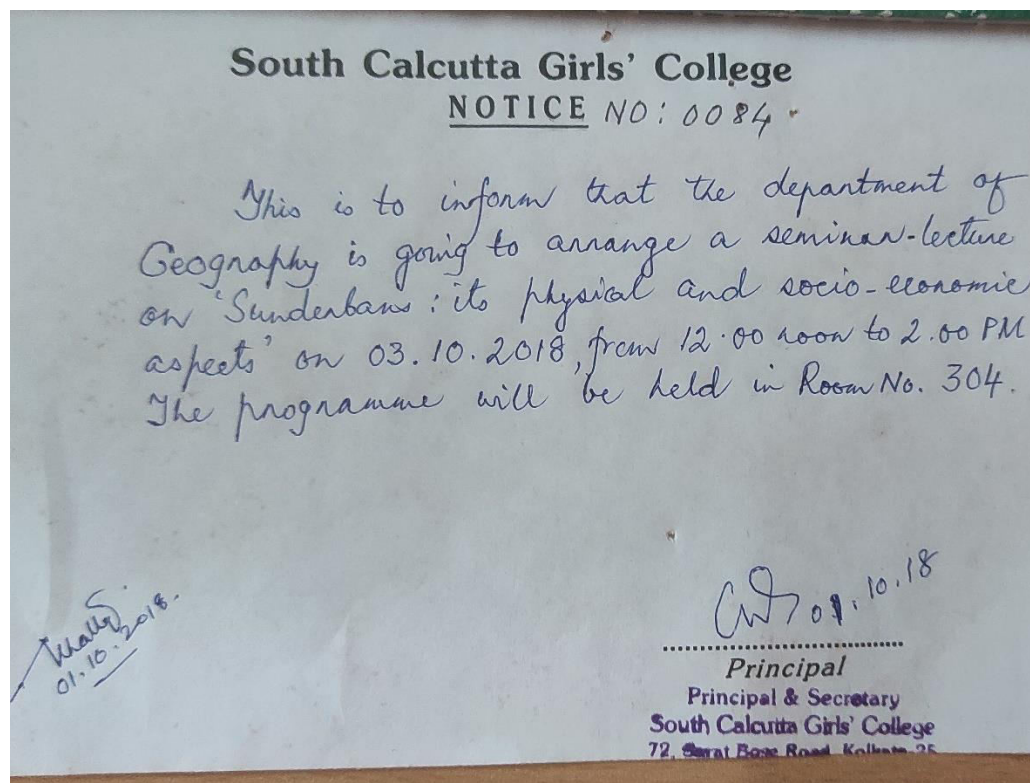 South Calcutta Girls' College
NOTICE NO: 0084
This is to inform that the department of
Geography is going to arrange a seminar-lecture
on 'Sunderbans: its physical and socio-economic
aspects' on 03.10.2018, from 12.00 noon to 2.00 PM
The programme will be held in Room No. 304.
01.10.2018.
01.10.18
Principal
Principal & Secretary
South Calcutta Girls' College
72, Sarat Bose Road, Kolkata-25